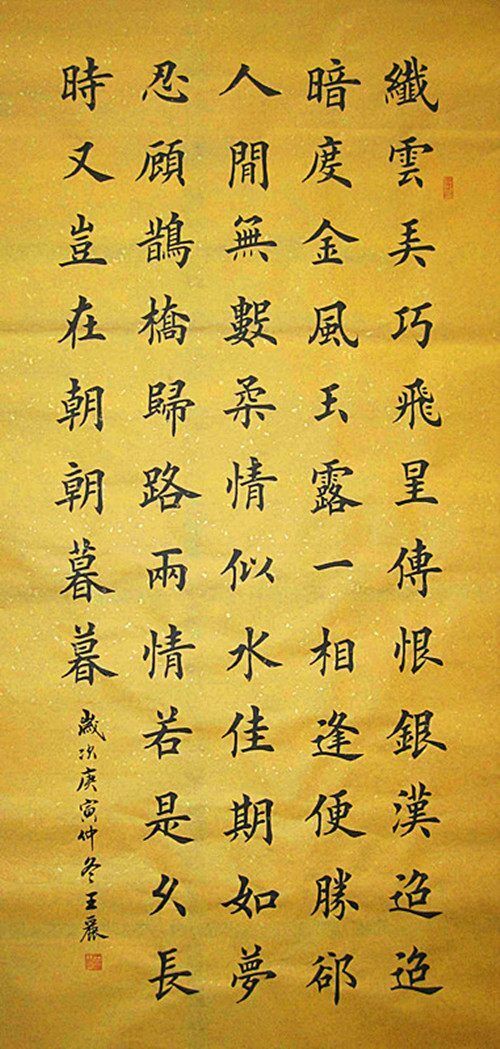 纖雲弄巧飛星傳恨銀漢迢迢
暗度金風玉露一相逢便勝郤
人間無數柔情似水佳期如夢
忍顧鵲橋歸路兩情若是久長
時又豈在朝朝暮暮
歲次庚寅仲冬王嚴